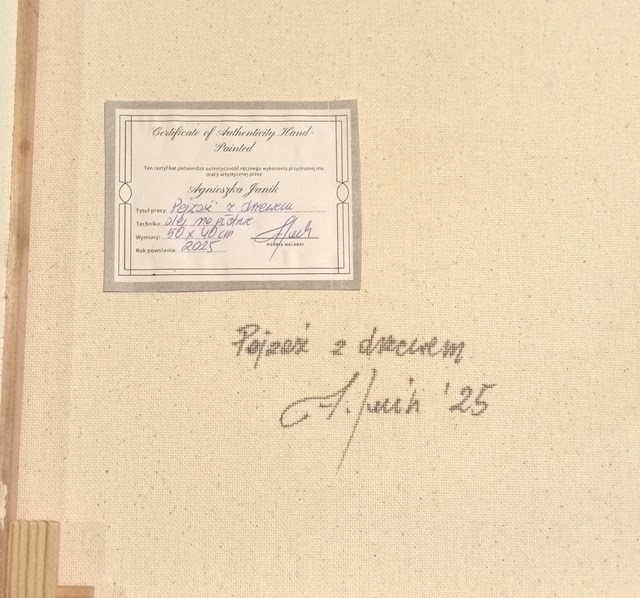 Certificate of Authenticity Hand-
Painted
Ten certyfikat potwierdza autentyczność ręcznego wykonania przyznanej mu
pracy artystycznej przez:
Agnieszka Janik
Tytuł pracy: Pejzaż z drzewem
Technika: olej na płótnie
Wymiary: 50 x 40 cm
PODPIS MALARKI
Rok powstania: 2025
Pejzaż z drzewem
A. Janik '25